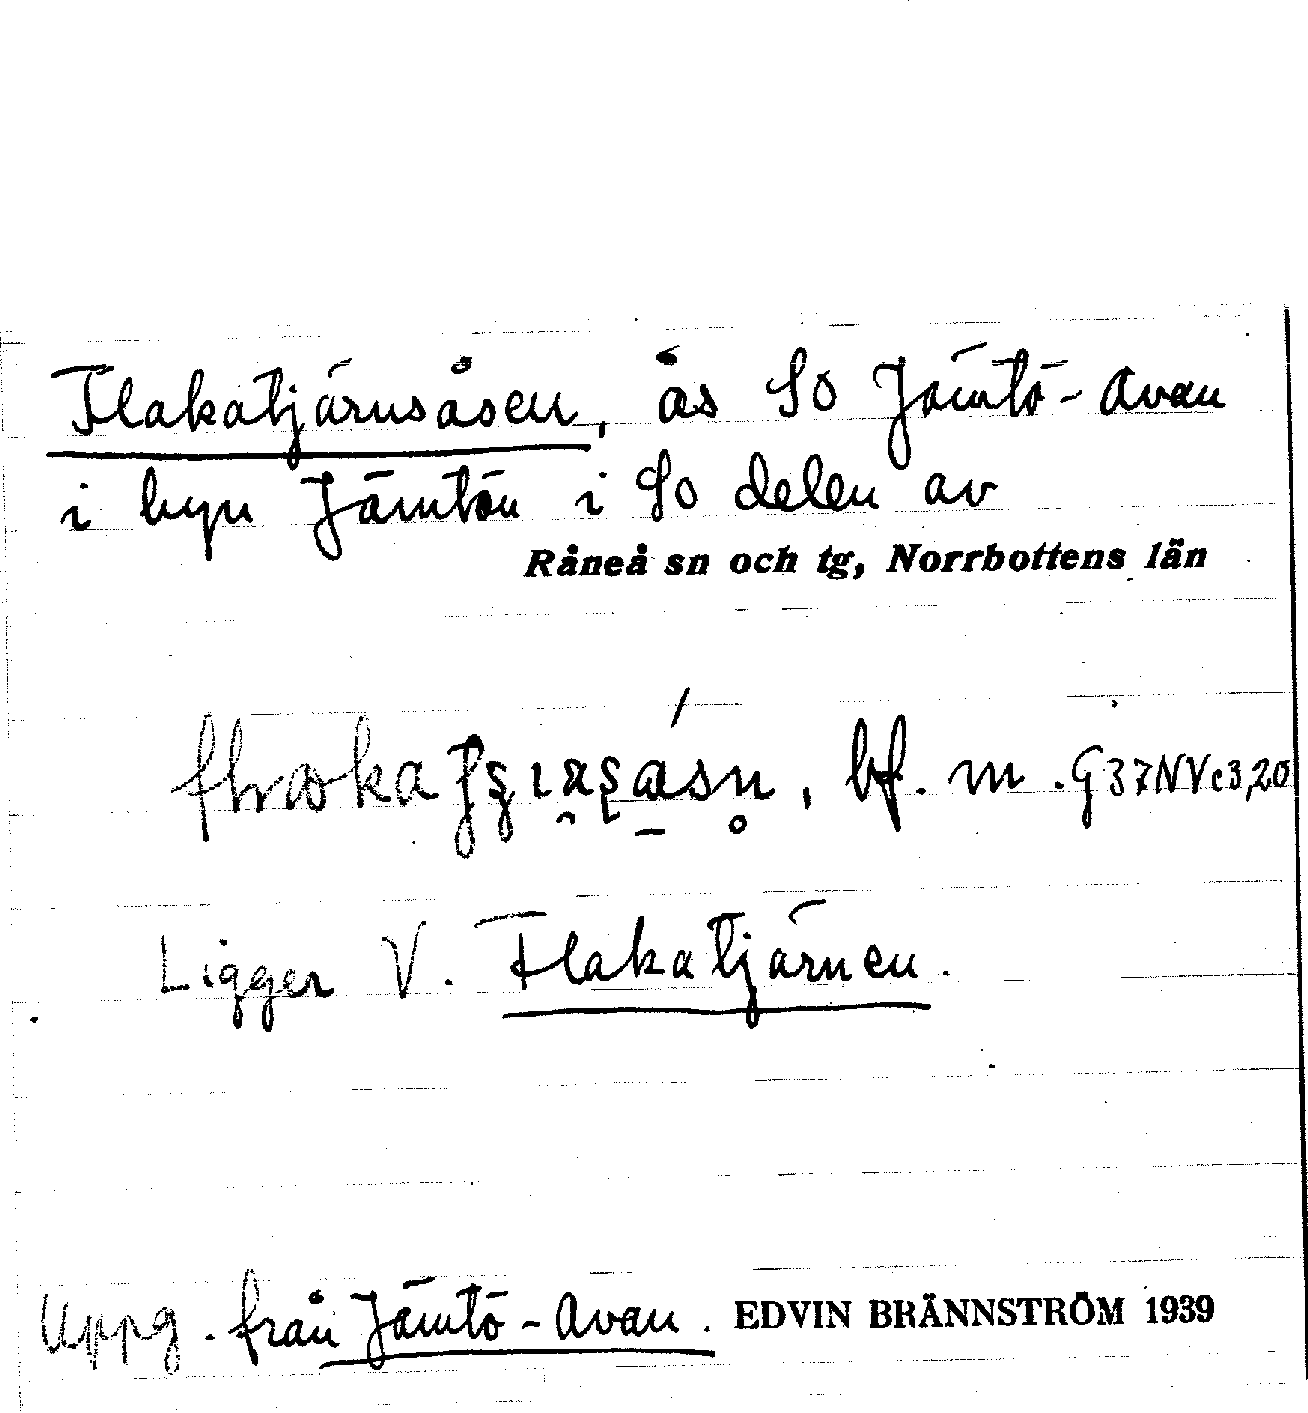 Flakatjärnsåsen, ås SO Jämtö-Avan
i byn Jämtön i SO delen av
Råneå sn och tg, Norrbottens län
bf. m. G37NVc3,20
Ligger V. Flakatjärnen.
Uppg. från Jämtö-Avan. EDVIN BRÄNNSTRÖM 1939